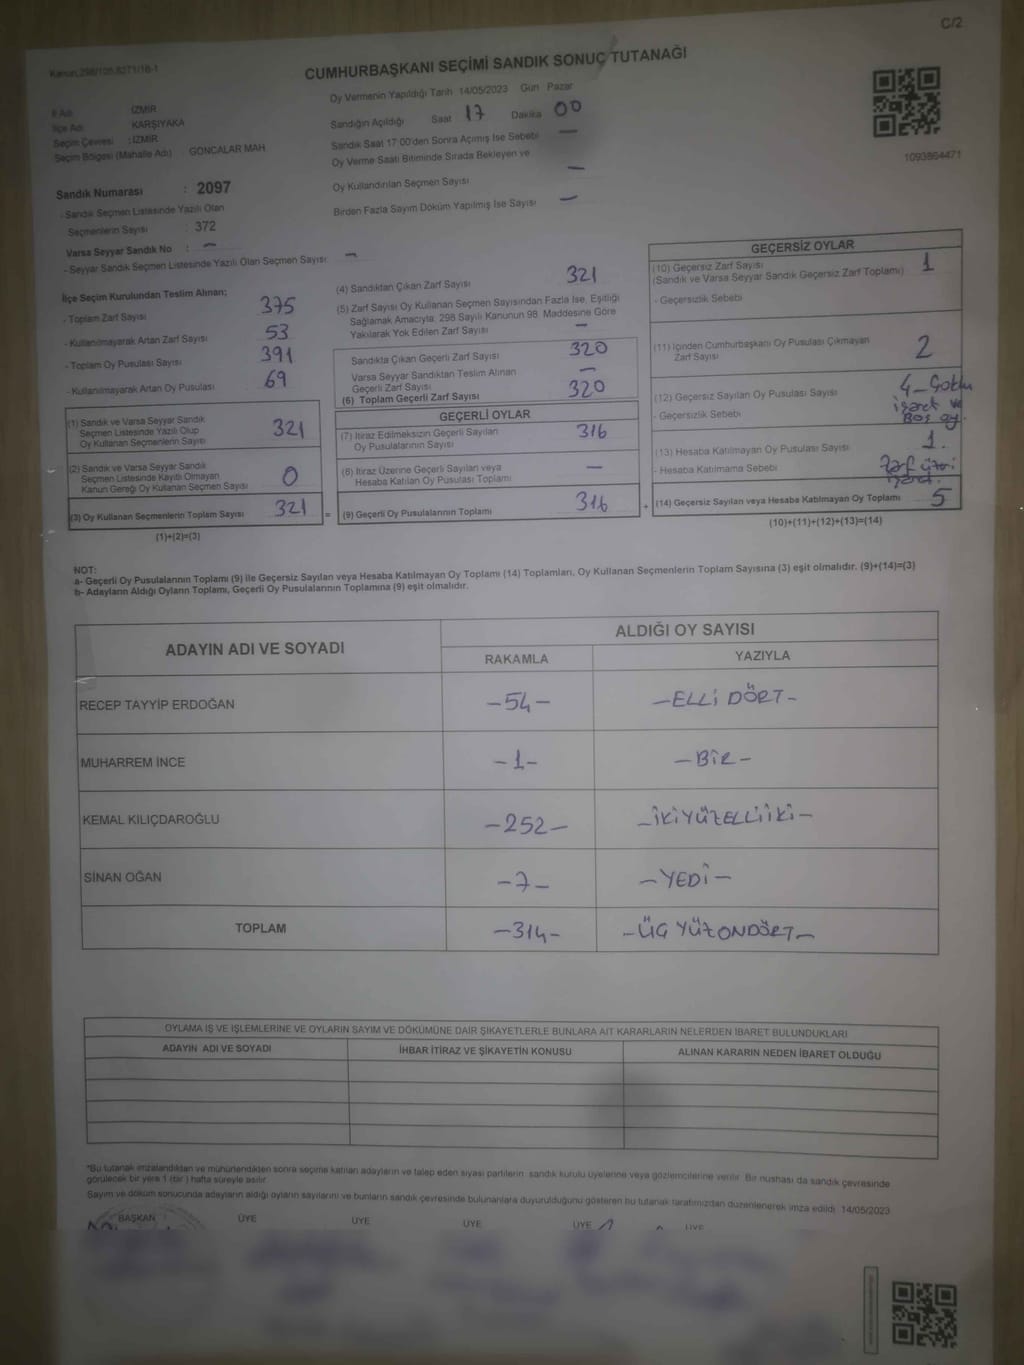 C/2
Kanun,298/105,6271/18-1
CUMHURBAŞKANI SEÇİMİ SANDIK SONUÇ TUTANAĞI
İl Adı : İZMİR
İlçe Adı : KARŞIYAKA
Seçim Çevresi : İZMİR
Seçim Bölgesi (Mahalle Adı) GONCALAR MAH
Sandık Numarası : 2097
- Sandık Seçmen Listesinde Yazılı Olan
Seçmenlerin Sayısı : 372
Varsa Seyyar Sandık No : -
- Seyyar Sandık Seçmen Listesinde Yazılı Olan Seçmen Sayısı -
Oy Vermenin Yapıldığı Tarih 14/05/2023 Gün Pazar
Sandığın Açıldığı Saat 17 Dakika 00
Sandık Saat 17:00'den Sonra Açımış İse Sebebi -
Oy Verme Saati Bitiminde Sırada Bekleyen ve
Oy Kullandırılan Seçmen Sayısı -
Birden Fazla Sayım Döküm Yapılmış İse Sayısı -
1093864471
İlçe Seçim Kurulundan Teslim Alınan;
- Toplam Zarf Sayısı 375
- Kullanılmayarak Artan Zarf Sayısı 53
- Toplam Oy Pusulası Sayısı 391
- Kullanılmayarak Artan Oy Pusulası 69
(1) Sandık ve Varsa Seyyar Sandık
Seçmen Listesinde Yazılı Olup
Oy Kullanan Seçmenlerin Sayısı 321
(2) Sandık ve Varsa Seyyar Sandık
Seçmen Listesinde Kayıtlı Olmayan
Kanun Gereği Oy Kullanan Seçmen Sayısı 0
(3) Oy Kullanan Seçmenlerin Toplam Sayısı 321 =
(1)+(2)=(3)
(4) Sandıktan Çıkan Zarf Sayısı 321
(5) Zarf Sayısı Oy Kullanan Seçmen Sayısından Fazla İse, Eşitliği
Sağlamak Amacıyla; 298 Sayılı Kanunun 98. Maddesine Göre
Yakılarak Yok Edilen Zarf Sayısı -
Sandıkta Çıkan Geçerli Zarf Sayısı 320
Varsa Seyyar Sandıktan Teslim Alınan
Geçerli Zarf Sayısı -
(6) Toplam Geçerli Zarf Sayısı 320
GEÇERLİ OYLAR
(7) İtiraz Edilmeksizin Geçerli Sayılan
Oy Pusulalarının Sayısı 316
(8) İtiraz Üzerine Geçerli Sayılan veya
Hesaba Katılan Oy Pusulası Toplamı -
(9) Geçerli Oy Pusulalarının Toplamı 316 +
GEÇERSİZ OYLAR
(10) Geçersiz Zarf Sayısı
(Sandık ve Varsa Seyyar Sandık Geçersiz Zarf Toplamı) 1
- Geçersizlik Sebebi
(11) İçinden Cumhurbaşkanı Oy Pusulası Çıkmayan
Zarf Sayısı 2
(12) Geçersiz Sayılan Oy Pusulası Sayısı 4
- Geçersizlik Sebebi işaret ve
Boş oy.
(13) Hesaba Katılmayan Oy Pusulası Sayısı 1.
- Hesaba Katılmama Sebebi Zarf üzeri
(14) Geçersiz Sayılan veya Hesaba Katılmayan Oy Toplamı 5
(10)+(11)+(12)+(13)=(14)
NOT:
a- Geçerli Oy Pusulalarının Toplamı (9) ile Geçersiz Sayılan veya Hesaba Katılmayan Oy Toplamı (14) Toplamları, Oy Kullanan Seçmenlerin Toplam Sayısına (3) eşit olmalıdır. (9)+(14)=(3)
b- Adayların Aldığı Oyların Toplamı, Geçerli Oy Pusulalarının Toplamına (9) eşit olmalıdır.
ADAYIN ADI VE SOYADI
ALDIĞI OY SAYISI
RAKAMLA YAZIYLA
RECEP TAYYİP ERDOĞAN -54- -ELLİ DÖRT-
MUHARREM İNCE -1- -BİR-
KEMAL KILIÇDAROĞLU -252- -İKİYÜZELLİİKİ-
SİNAN OĞAN -7- -YEDİ-
TOPLAM -314- -ÜÇ YÜZONDÖRT-
OYLAMA İŞ VE İŞLEMLERİNE VE OYLARIN SAYIM VE DÖKÜMÜNE DAİR ŞİKAYETLERLE BUNLARA AİT KARARLARIN NELERDEN İBARET BULUNDUKLARI
ADAYIN ADI VE SOYADI İHBAR İTİRAZ VE ŞİKAYETİN KONUSU ALINAN KARARIN NEDEN İBARET OLDUĞU
*Bu tutanak imzalandıktan ve mühürlendikten sonra seçime katılan adayların ve talep eden siyasi partilerin sandık kurulu üyelerine veya gözlemcilerine verilir. Bir nüshası da sandık çevresinde
görülecek bir yere 1 (bir) hafta süreyle asılır.
Sayım ve döküm sonucunda adayların aldığı oyların sayılarını ve bunların sandık çevresinde bulunanlara duyurulduğunu gösteren bu tutanak tarafımızdan düzenlenerek imza edildi. 14/05/2023
BAŞKAN ÜYE ÜYE ÜYE ÜYE ÜYE